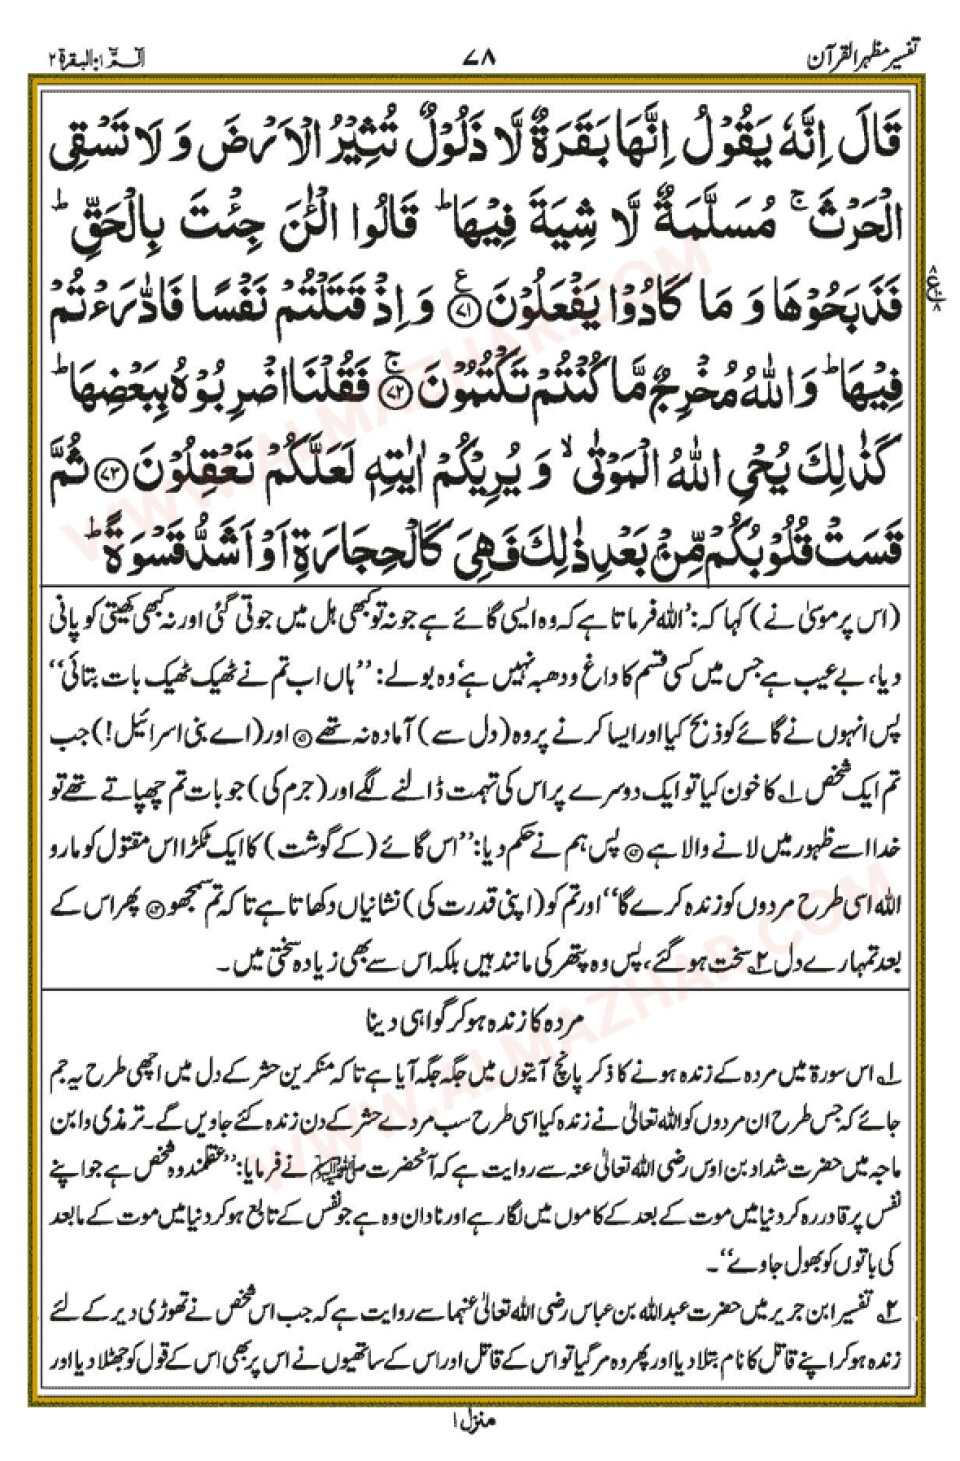 تفسیر مظہر القرآن
۷۸
الٓمّٓ ۱: البقرۃ ۲
قَالَ اِنَّهٗ يَقُوۡلُ اِنَّهَا بَقَرَةٌ لَّا ذَلُوۡلٌ تُثِيۡرُ الۡاَرۡضَ وَ لَا تَسۡقِى
الۡحَرۡثَ ۚ مُسَلَّمَةٌ لَّا شِيَةَ فِيۡهَا ؕ قَالُوا الۡـٰٔنَ جِئۡتَ بِالۡحَقِّ ؕ
فَذَبَحُوۡهَا وَ مَا كَادُوۡا يَفۡعَلُوۡنَ ﴿۷۱﴾ وَ اِذۡ قَتَلۡتُمۡ نَفۡسًا فَادّٰرَءۡتُمۡ
فِيۡهَا ؕ وَاللّٰهُ مُخۡرِجٌ مَّا كُنۡتُمۡ تَكۡتُمُوۡنَ ۚ ﴿۷۲﴾ فَقُلۡنَا اضۡرِبُوۡهُ بِبَعۡضِهَا ؕ
كَذٰلِكَ يُحۡىِ اللّٰهُ الۡمَوۡتٰى ۙ وَ يُرِيۡكُمۡ اٰيٰتِهٖ لَعَلَّكُمۡ تَعۡقِلُوۡنَ ﴿۷۳﴾ ثُمَّ
قَسَتۡ قُلُوۡبُكُمۡ مِّنۡۢ بَعۡدِ ذٰلِكَ فَهِىَ كَالۡحِجَارَةِ اَوۡ اَشَدُّ قَسۡوَةً ؕ
(اس پر موسیٰ نے) کہا کہ: ’اللہ فرماتا ہے کہ وہ ایسی گائے ہے جو نہ تو کبھی ہل میں جوتی گئی اور نہ کبھی کھیتی کو پانی
دیا، بے عیب ہے جس میں کسی قسم کا داغ و دھبہ نہیں ہے‘ وہ بولے: ’’ہاں اب تم نے ٹھیک ٹھیک بات بتائی‘‘
پس انہوں نے گائے کو ذبح کیا اور ایسا کرنے پر وہ (دل سے) آمادہ نہ تھے ﴿۷۱﴾ اور (اے بنی اسرائیل!) جب
تم ایک شخص ۱؎ کا خون کیا تو ایک دوسرے پر اس کی تہمت ڈالنے لگے اور (جرم کی) جو بات تم چھپاتے تھے تو
خدا اسے ظہور میں لانے والا ہے ﴿۷۲﴾ پس ہم نے حکم دیا: ’’اس گائے (کے گوشت) کا ایک ٹکڑا اس مقتول کو مارو
اللہ اسی طرح مردوں کو زندہ کرے گا‘‘ اور تم کو (اپنی قدرت کی) نشانیاں دکھاتا ہے تا کہ تم سمجھو ﴿۷۳﴾ پھر اس کے
بعد تمہارے دل ۲؎ سخت ہو گئے، پس وہ پتھر کی مانند ہیں بلکہ اس سے بھی زیادہ سختی میں۔
مردہ کا زندہ ہو کر گواہی دینا
۱؎ اس سورۃ میں مردہ کے زندہ ہونے کا ذکر پانچ آیتوں میں جگہ جگہ آیا ہے تا کہ منکرین حشر کے دل میں اچھی طرح یہ جم
جائے کہ جس طرح ان مردوں کو اللہ تعالیٰ نے زندہ کیا اسی طرح سب مردے حشر کے دن زندہ کئے جاویں گے۔ ترمذی و ابن
ماجہ میں حضرت شداد بن اوس رضی اللہ تعالیٰ عنہ سے روایت ہے کہ آنحضرت ﷺ نے فرمایا: ’’عقلمند وہ شخص ہے جو اپنے
نفس پر قادر رہ کر دنیا میں موت کے بعد کے کاموں میں لگا رہے اور نادان وہ ہے جو نفس کے تابع ہو کر دنیا میں موت کے مابعد
کی باتوں کو بھول جاوے‘‘۔
۲؎ تفسیر ابن جریر میں حضرت عبداللہ بن عباس رضی اللہ تعالیٰ عنہما سے روایت ہے کہ جب اس شخص نے تھوڑی دیر کے لئے
زندہ ہو کر اپنے قاتل کا نام بتلا دیا اور پھر وہ مر گیا تو اس کے قاتل اور اس کے ساتھیوں نے اس پر بھی اس کے قول کو جھٹلا دیا اور
منزل ۱
WWW.ALMAZHAR.COM
WWW.ALMAZHAR.COM